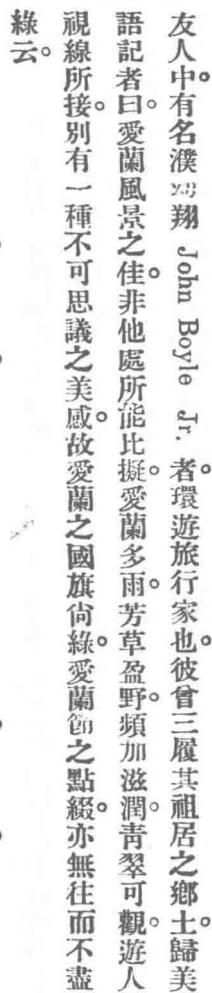 友人中。有名濮翔 John Boyle Jr. 者。環遊旅行家也。彼曾三履其祖居之鄉土。歸美
語記者曰。愛蘭風景之佳。非他處所能比擬。愛蘭多雨。芳草盈野。頻加滋潤。青翠可觀。遊人
視線所接。別有一種不可思議之美感。故愛蘭之國旗尙綠。愛蘭節之點綴。亦無往而不盡
綠云。